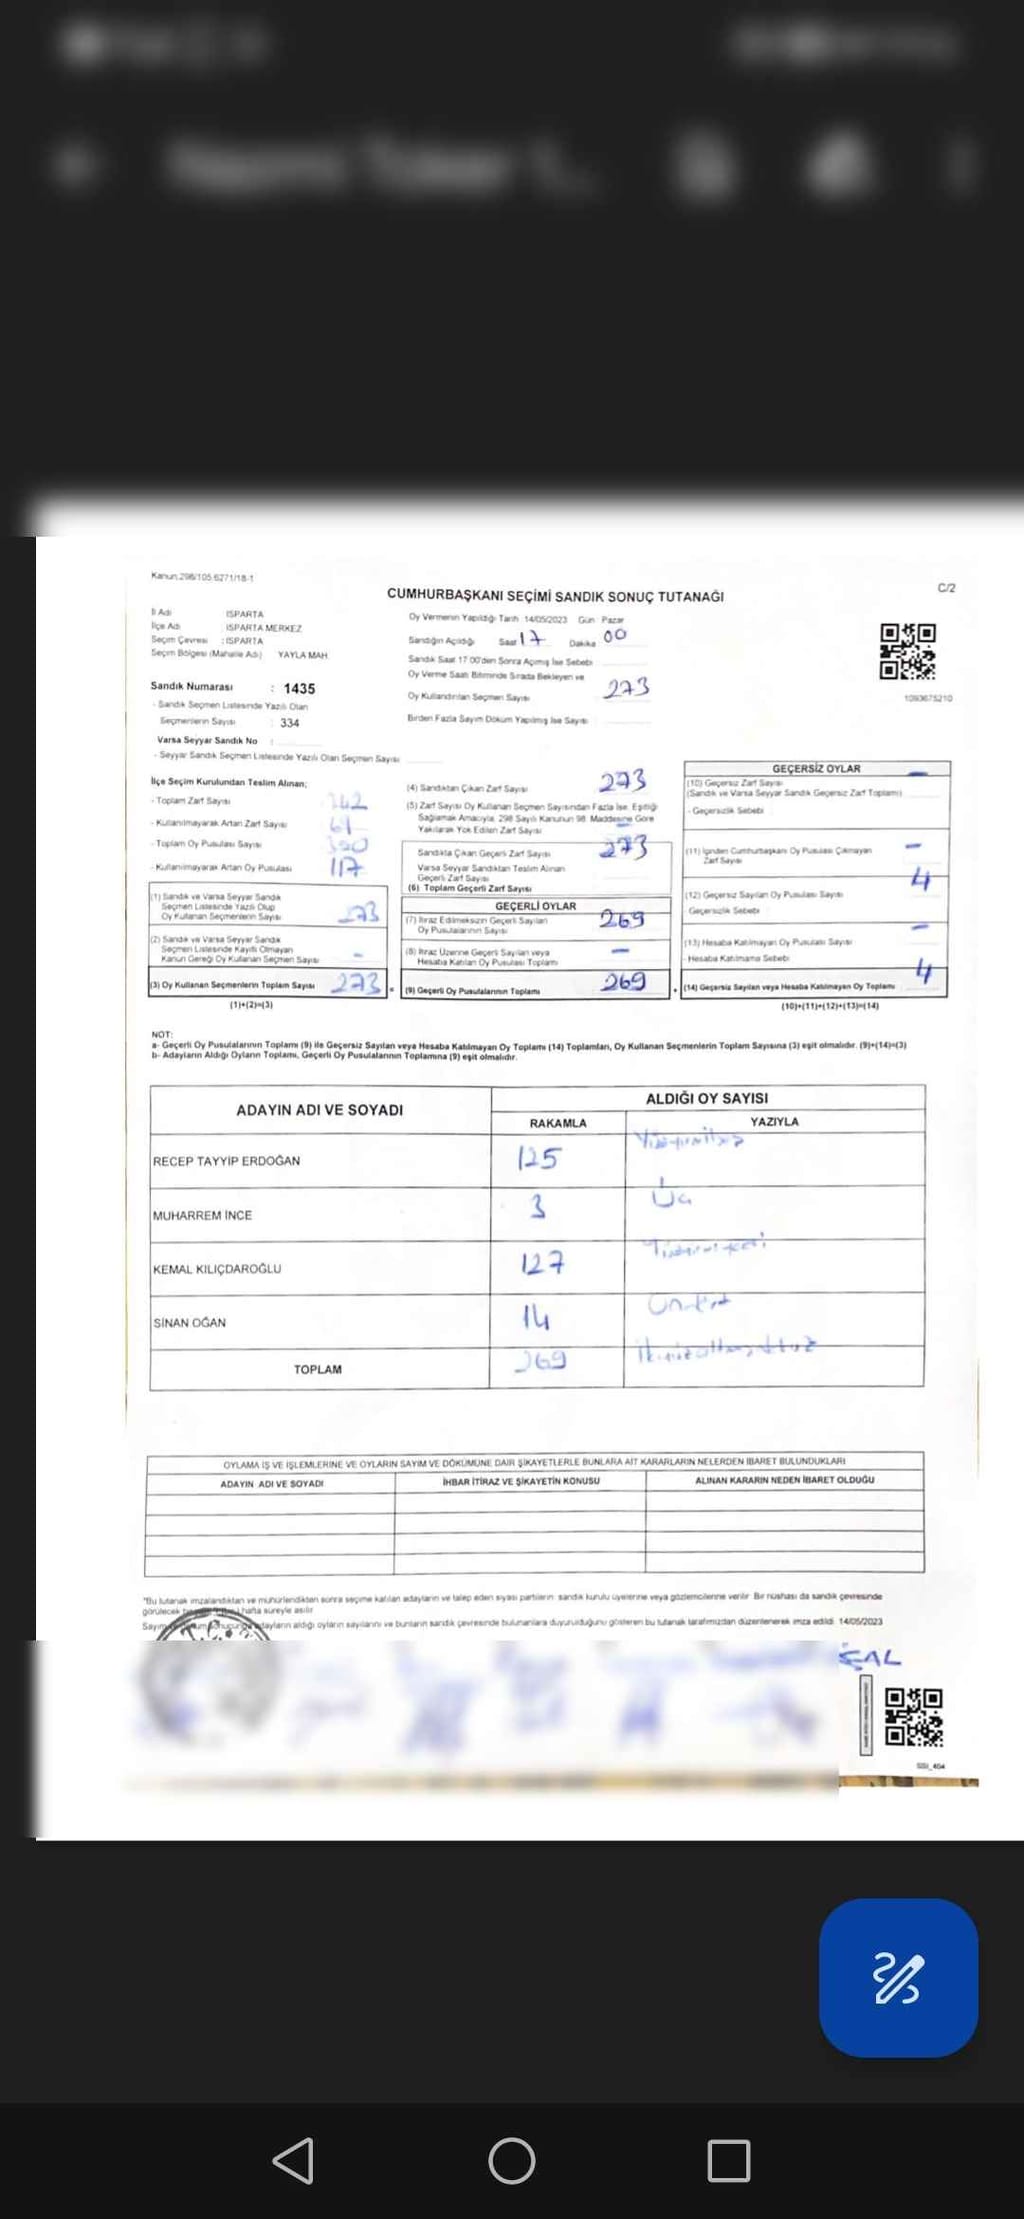 Kanun:298/105 6271/18-1
C/2
CUMHURBAŞKANI SEÇİMİ SANDIK SONUÇ TUTANAĞI
İl Adı ISPARTA
İlçe Adı ISPARTA MERKEZ
Seçim Çevresi : ISPARTA
Seçim Bölgesi (Mahalle Adı) YAYLA MAH.
Sandık Numarası : 1435
- Sandık Seçmen Listesinde Yazılı Olan
Seçmenlerin Sayısı : 334
Varsa Seyyar Sandık No :
- Seyyar Sandık Seçmen Listesinde Yazılı Olan Seçmen Sayısı
Oy Vermenin Yapıldığı Tarih 14/05/2023 Gün Pazar
Sandığın Açıldığı Saat 17 Dakika 00
Sandık Saat 17:00'den Sonra Açılmış İse Sebebi
Oy Verme Saati Bitiminde Sırada Bekleyen ve
Oy Kullandırılan Seçmen Sayısı 273
Birden Fazla Sayım Döküm Yapılmış İse Sayısı
1093675210
İlçe Seçim Kurulundan Teslim Alınan;
- Toplam Zarf Sayısı 342
- Kullanılmayarak Artan Zarf Sayısı 69
- Toplam Oy Pusulası Sayısı 390
- Kullanılmayarak Artan Oy Pusulası 117
(1) Sandık ve Varsa Seyyar Sandık
Seçmen Listesinde Yazılı Olup
Oy Kullanan Seçmenlerin Sayısı 273
(2) Sandık ve Varsa Seyyar Sandık
Seçmen Listesinde Kayıtlı Olmayan
Kanun Gereği Oy Kullanan Seçmen Sayısı -
(3) Oy Kullanan Seçmenlerin Toplam Sayısı 273
(1)+(2)=(3)
=
(4) Sandıktan Çıkan Zarf Sayısı 273
(5) Zarf Sayısı Oy Kullanan Seçmen Sayısından Fazla İse, Eşitliği
Sağlamak Amacıyla 298 Sayılı Kanunun 98. Maddesine Göre
Yakılarak Yok Edilen Zarf Sayısı -
Sandıkta Çıkan Geçerli Zarf Sayısı 273
Varsa Seyyar Sandıktan Teslim Alınan
Geçerli Zarf Sayısı
(6) Toplam Geçerli Zarf Sayısı
GEÇERLİ OYLAR
(7) İtiraz Edilmeksizin Geçerli Sayılan
Oy Pusulalarının Sayısı 269
(8) İtiraz Üzerine Geçerli Sayılan veya
Hesaba Katılan Oy Pusulası Toplamı -
(9) Geçerli Oy Pusulalarının Toplamı 269
+
GEÇERSİZ OYLAR
(10) Geçersiz Zarf Sayısı -
(Sandık ve Varsa Seyyar Sandık Geçersiz Zarf Toplamı)
- Geçersizlik Sebebi
(11) İçinden Cumhurbaşkanı Oy Pusulası Çıkmayan -
Zarf Sayısı
(12) Geçersiz Sayılan Oy Pusulası Sayısı 4
Geçersizlik Sebebi
(13) Hesaba Katılmayan Oy Pusulası Sayısı -
- Hesaba Katılmama Sebebi
(14) Geçersiz Sayılan veya Hesaba Katılmayan Oy Toplamı 4
(10)+(11)+(12)+(13)=(14)
NOT:
a- Geçerli Oy Pusulalarının Toplamı (9) ile Geçersiz Sayılan veya Hesaba Katılmayan Oy Toplamı (14) Toplamları, Oy Kullanan Seçmenlerin Toplam Sayısına (3) eşit olmalıdır. (9)+(14)=(3)
b- Adayların Aldığı Oyların Toplamı, Geçerli Oy Pusulalarının Toplamına (9) eşit olmalıdır.
ADAYIN ADI VE SOYADI ALDIĞI OY SAYISI
RAKAMLA YAZIYLA
RECEP TAYYİP ERDOĞAN 125 Yüzyirmibeş
MUHARREM İNCE 3 Üç
KEMAL KILIÇDAROĞLU 127 Yüzyirmiyedi
SİNAN OĞAN 14 Ondört
TOPLAM 269 İkiyüzaltmışdokuz
OYLAMA İŞ VE İŞLEMLERİNE VE OYLARIN SAYIM VE DÖKÜMÜNE DAİR ŞİKAYETLERLE BUNLARA AİT KARARLARIN NELERDEN İBARET BULUNDUKLARI
ADAYIN ADI VE SOYADI İHBAR İTİRAZ VE ŞİKAYETİN KONUSU ALINAN KARARIN NEDEN İBARET OLDUĞU
*Bu tutanak imzalandıktan ve mühürlendikten sonra seçime katılan adayların ve talep eden siyasi partilerin sandık kurulu üyelerine veya gözlemcilerine verilir. Bir nüshası da sandık çevresinde
görülecek bir hafta süreyle asılır
Sayım adayların aldığı oyların sayılarını ve bunların sandık çevresinde bulunanlara duyurulduğunu gösteren bu tutanak tarafımızdan düzenlenerek imza edildi. 14/05/2023
T.C.